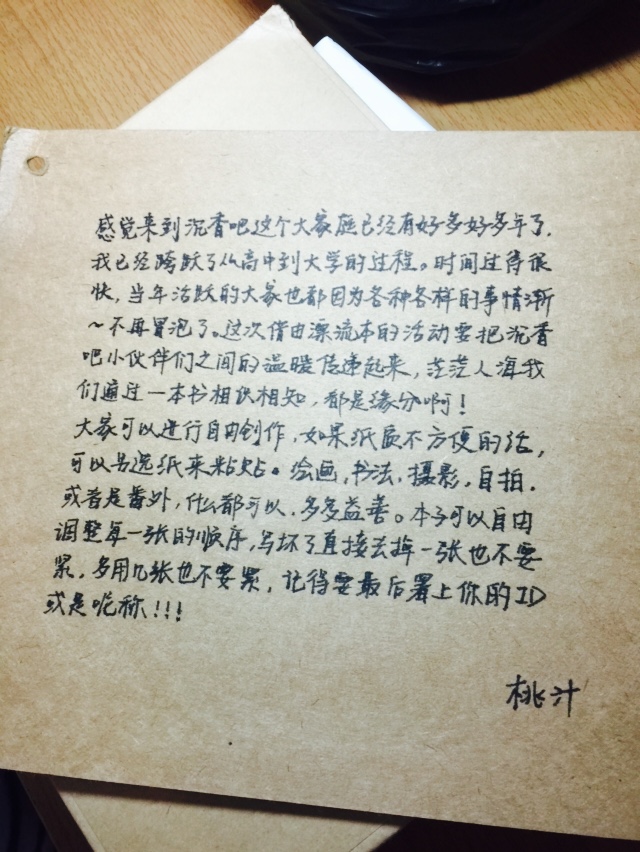 感觉来到沉香吧这个大家庭已经有好多好多年了，
我已经跨跃了从高中到大学的过程。时间过得很
快，当年活跃的大家也都因为各种各样的事情渐
~不再冒泡了。这次借由漂流本的活动要把沉香
吧小伙伴们之间的温暖传递起来，茫茫人海我
们通过一本书相识相知，都是缘分啊！
大家可以进行自由创作，如果纸质不方便的话，
可以另选纸来粘贴。绘画，书法，摄影，自拍，
或者是番外，什么都可以，多多益善。本子可以自由
调整每一张的顺序，写坏了直接去掉一张也不要
紧，多用几张也不要紧，记得要最后署上你的ID
或是呢称！！！
桃汁